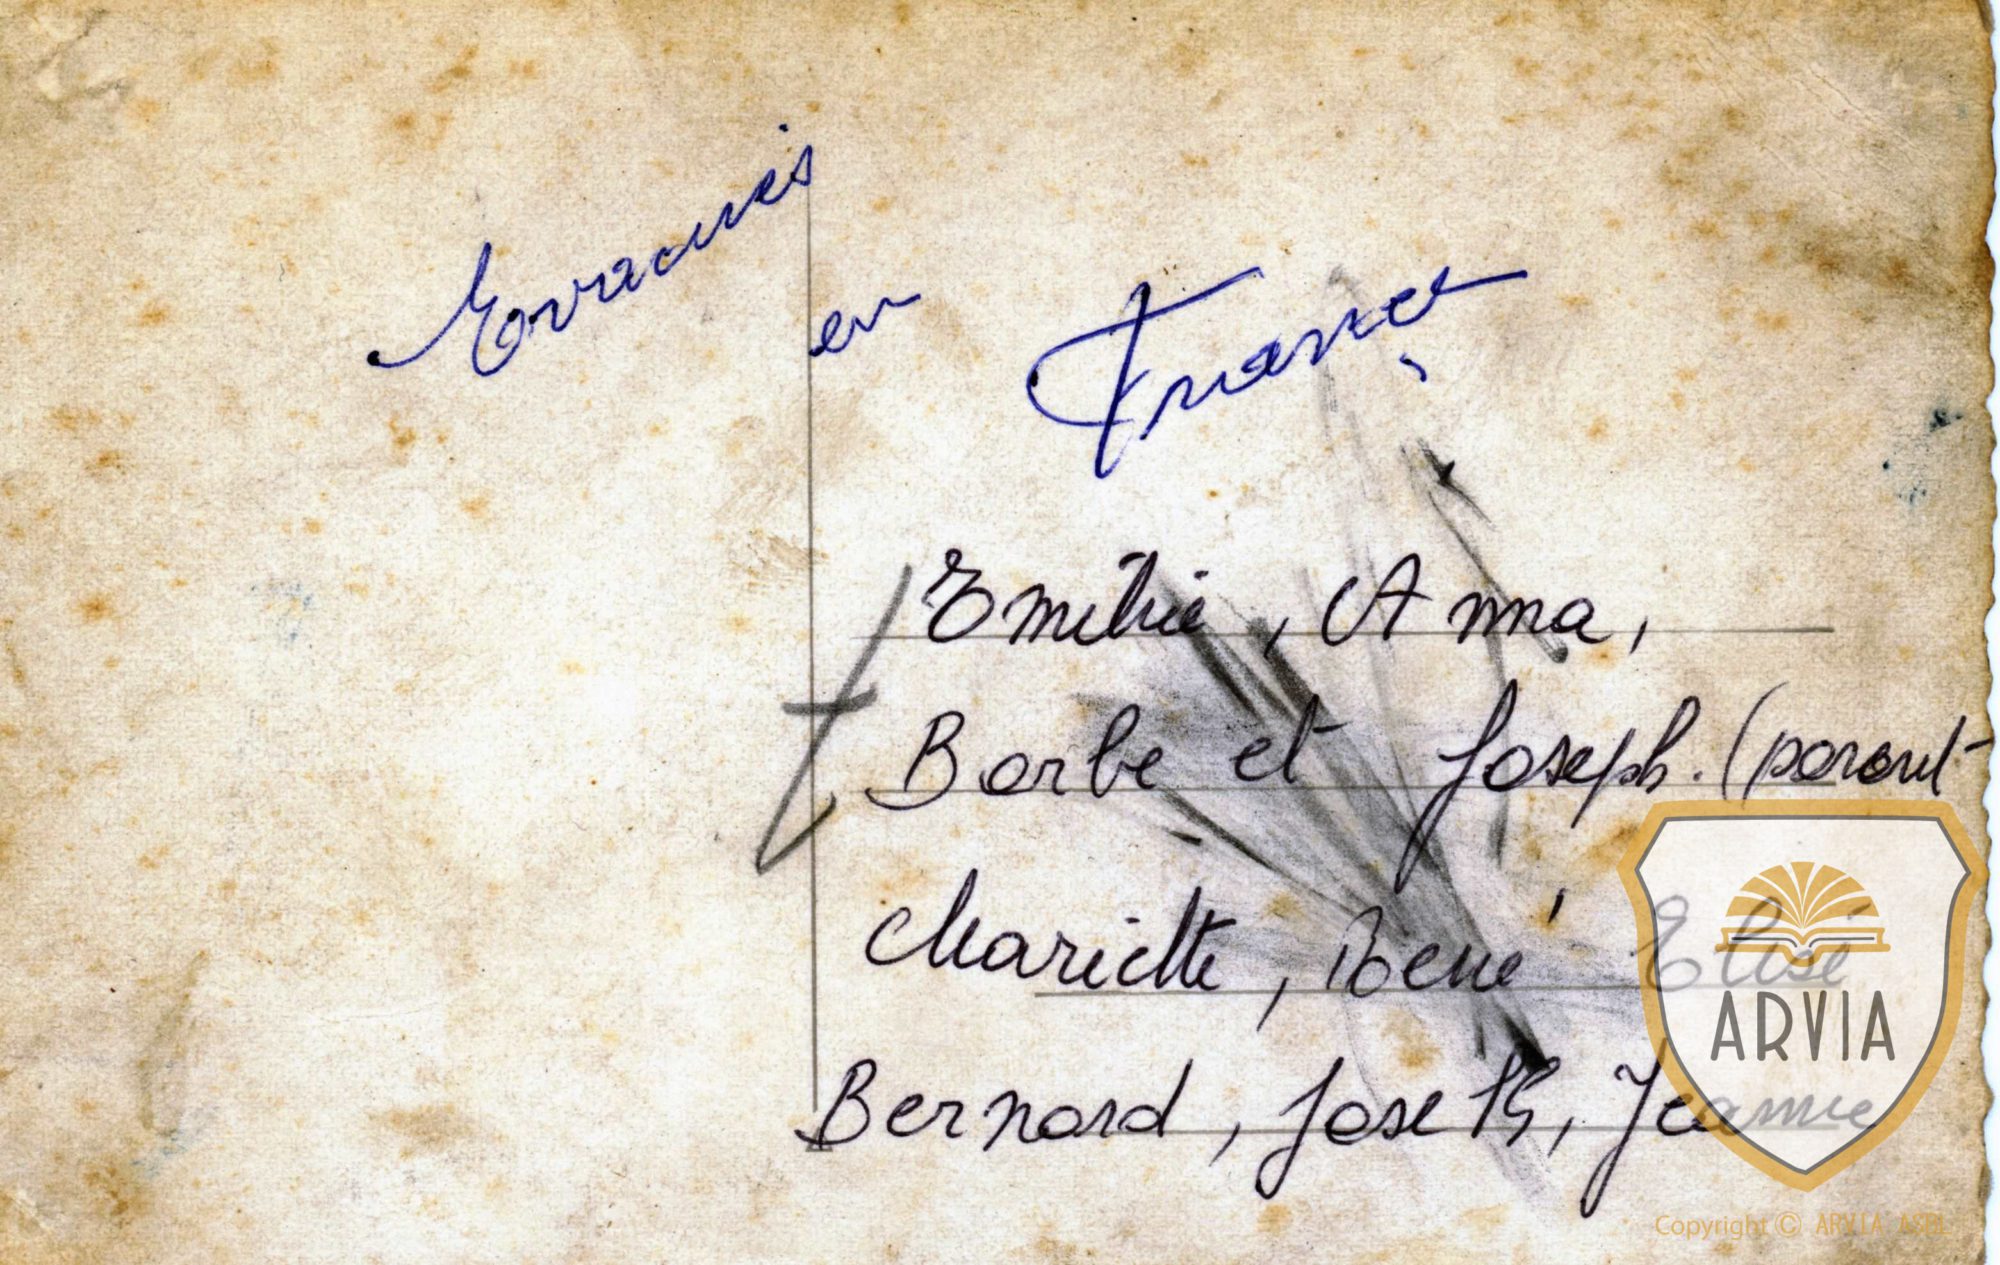 Evacués
en France
Emilie, Anna,
Barbe et Joseph. (parent
Mariette, René Elisé
Bernard, Joseph, Jeanne
ARVIA
Copyright © ARVIA ASBL